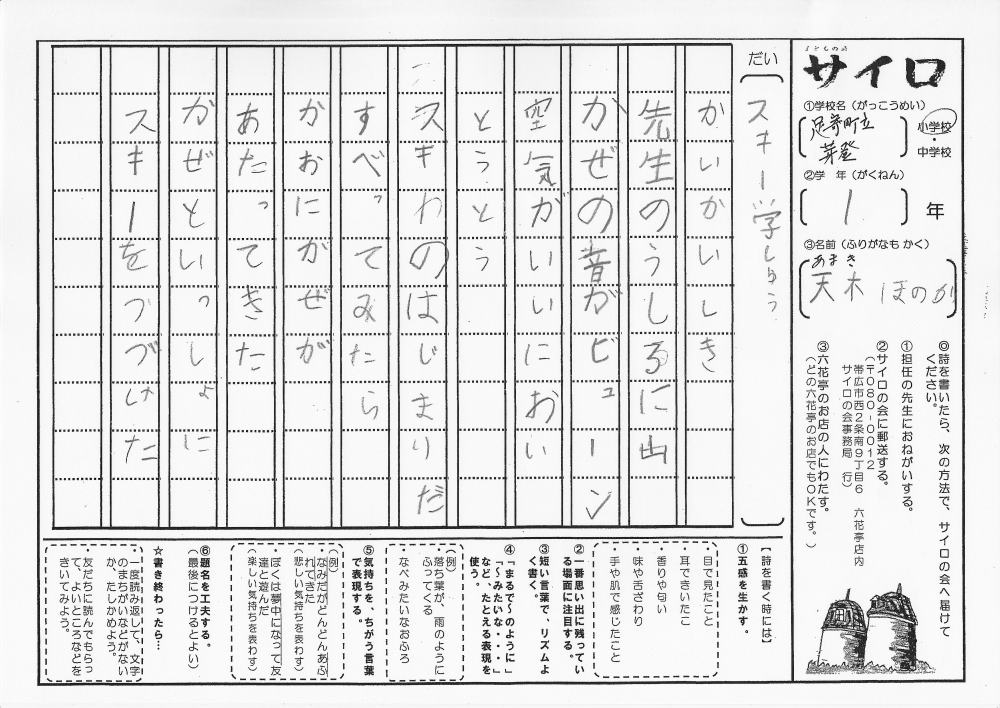 こどもの詩
サイロ
①学校名（がっこうめい）
足寄町立
芽登
小学校
・
中学校
②学　年（がくねん）
1
年
③名前（ふりがなも かく）
あまき
天木 ほのか
◎詩を書いたら、次の方法で、サイロの会へ届けて
ください。
①担任の先生におねがいする。
②サイロの会に郵送する。
（〒080-0012
帯広市西2条南9丁目6　六花亭店内
サイロの会事務局　行）
③六花亭のお店の人にわたす。
（どの六花亭のお店でもOKです。）
だい
スキー学しゅう
かいかいしき
先生のうしろに山
かぜの音がビューン
空気がいいにおい
とうとう
スキーわのはじまりだ
すべってみたら
かおにかぜが
あたってきた
かぜといっしょに
スキーをつづけた
【詩を書く時には】
①五感を生かす。
・目で見たこと
・耳できいたこ
・香りや匂い
・味や舌ざわり
・手や肌で感じたこと
②一番思い出に残ってい
る場面に注目する。
③短い言葉で、リズムよ
く書く。
④「まるで～のように」
「～みたいな・・・」
など、たとえる表現を
使う。
（例）
・落ち葉が、雨のように
ふってくる
・なべみたいなおふろ
⑤気持ちを、ちがう言葉
で表現する。
（例）
・なみだがどんどんあふ
れてきた
（悲しい気持ちを表わす）
・ぼくは夢中になって友
達と遊んだ
（楽しい気持ちを表わす）
⑥題名を工夫する。
（最後につけるとよい）
☆書き終わったら…
・一度読み返して、文字
のまちがいなどがない
か、たしかめよう。
・友だちに読んでもらっ
て、よいところなどを
きいてみよう。